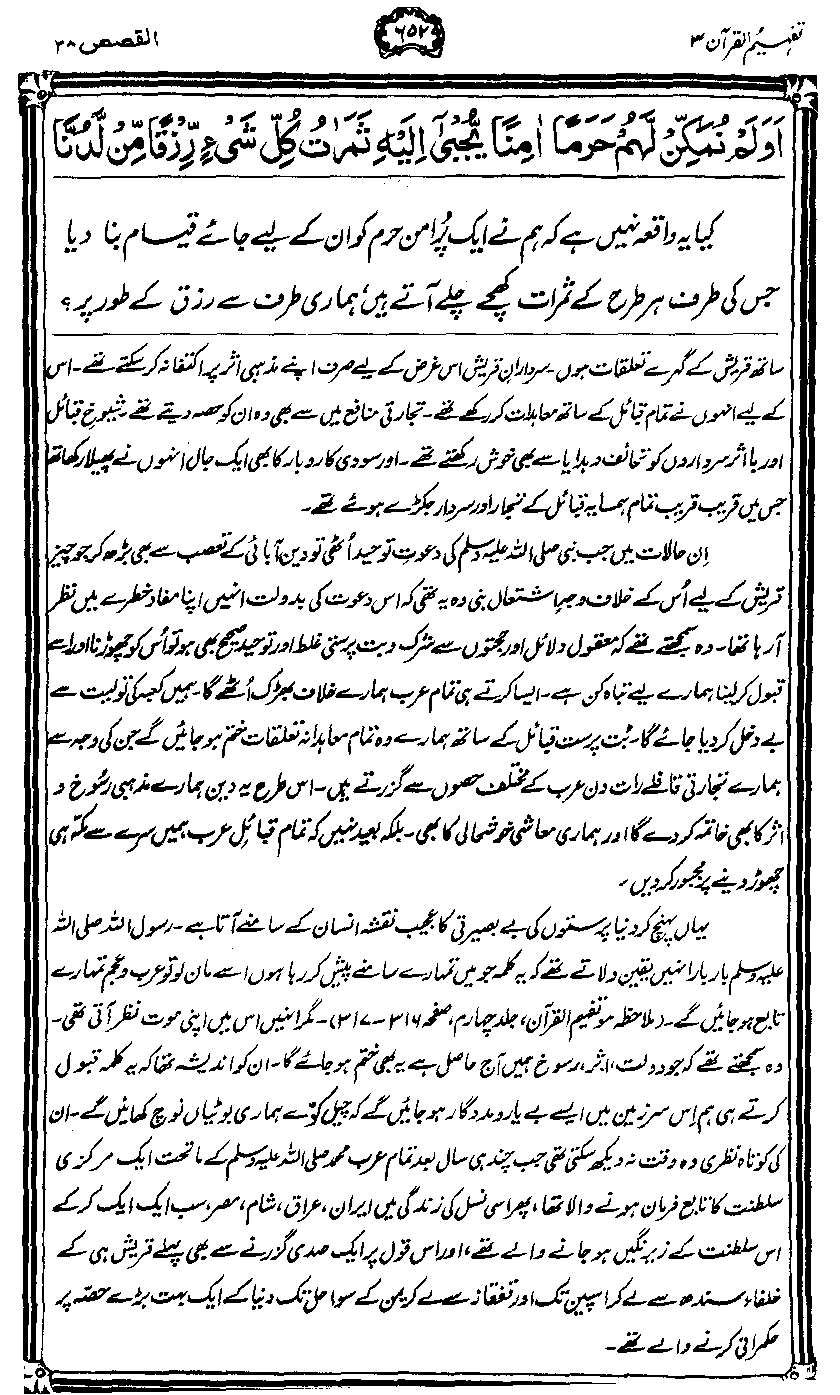 تفہیم القرآن ۳
۶۵۲
القصص ۲۸
اَوَلَمْ نُمَكِّنْ لَّهُمْ حَرَمًا اٰمِنًا يُّجْبٰٓى اِلَيْهِ ثَمَرٰتُ كُلِّ شَيْءٍ رِّزْقًا مِّنْ لَّدُنَّا
کیا یہ واقعہ نہیں ہے کہ ہم نے ایک پُرامن حرم کو ان کے لیے جائے قیام بنا دیا
جس کی طرف ہر طرح کے ثمرات کھچے چلے آتے ہیں، ہماری طرف سے رزق کے طور پر؟
ساتھ قریش کے گہرے تعلقات ہوں۔ سردارانِ قریش اس غرض کے لیے صرف اپنے مذہبی اثر پر اکتفا نہ کر سکتے تھے۔ اس
کے لیے انہوں نے تمام قبائل کے ساتھ معاہدات کر رکھے تھے۔ تجارتی منافع میں سے بھی وہ ان کو حصہ دیتے تھے۔ شیوخِ قبائل
اور با اثر سرداروں کو تحائف و ہدایا سے بھی خوش رکھتے تھے۔ اور سودی کاروبار کا بھی ایک جال انہوں نے پھیلا رکھا تھا
جس میں قریب قریب تمام ہمسایہ قبائل کے تجار اور سردار جکڑے ہوئے تھے۔
اِن حالات میں جب نبی صلی اللہ علیہ وسلم کی دعوتِ توحید اُٹھی تو دینِ آبائی کے تعصب سے بھی بڑھ کر جو چیز
قریش کے لیے اُس کے خلاف وجہِ اشتعال بنی وہ یہ تھی کہ اس دعوت کی بدولت انہیں اپنا مفاد خطرے میں نظر
آ رہا تھا۔ وہ سمجھتے تھے کہ معقول دلائل اور حجتوں سے شرک و بت پرستی غلط اور توحید صحیح بھی ہو تو اُس کو چھوڑنا اور اسے
قبول کر لینا ہمارے لیے تباہ کن ہے۔ ایسا کرتے ہی تمام عرب ہمارے خلاف بھڑک اُٹھے گا۔ ہمیں کعبہ کی تولیت سے
بے دخل کر دیا جائے گا۔ بُت پرست قبائل کے ساتھ ہمارے وہ تمام معاہدانہ تعلقات ختم ہو جائیں گے جن کی وجہ سے
ہمارے تجارتی قافلے رات دن عرب کے مختلف حصوں سے گزرتے ہیں۔ اس طرح یہ دین ہمارے مذہبی رسُوخ و
اثر کا بھی خاتمہ کر دے گا اور ہماری معاشی خوشحالی کا بھی۔ بلکہ بعید نہیں کہ تمام قبائلِ عرب ہمیں سرے سے مکہ ہی
چھوڑ دینے پر مجبور کر دیں۔
یہاں پہنچ کر دنیا پرستوں کی بے بصیرتی کا عجیب نقشہ انسان کے سامنے آتا ہے۔ رسول اللہ صلی اللہ
علیہ وسلم بار بار انہیں یقین دلاتے تھے کہ یہ کلمہ جو میں تمہارے سامنے پیش کر رہا ہوں اسے مان لو تو عرب و عجم تمہارے
تابع ہو جائیں گے۔ (ملاحظہ ہو تفہیم القرآن، جلد چہارم، صفحہ ۳۱۶-۳۱۷)۔ مگر انہیں اس میں اپنی موت نظر آتی تھی۔
وہ سمجھتے تھے کہ جو دولت، اثر، رسوخ ہمیں آج حاصل ہے یہ بھی ختم ہو جائے گا۔ ان کو اندیشہ تھا کہ یہ کلمہ قبول
کرتے ہی ہم اِس سرزمین میں ایسے بے یار و مددگار ہو جائیں گے کہ چیل کوّے ہماری بوٹیاں نوچ کھائیں گے۔ ان
کی کوتاہ نظری وہ وقت نہ دیکھ سکتی تھی جب چند ہی سال بعد تمام عرب محمد صلی اللہ علیہ وسلم کے ماتحت ایک مرکزی
سلطنت کا تابع فرمان ہونے والا تھا، پھر اسی نسل کی زندگی میں ایران، عراق، شام، مصر، سب ایک ایک کر کے
اس سلطنت کے زیرِ نگیں ہو جانے والے تھے، اور اس قول پر ایک صدی گزرنے سے بھی پہلے قریش ہی کے
خلفاء سندھ سے لے کر اسپین تک اور قفقاز سے لے کر یمن کے سواحل تک دنیا کے ایک بہت بڑے حصّہ پر
حکمرانی کرنے والے تھے۔